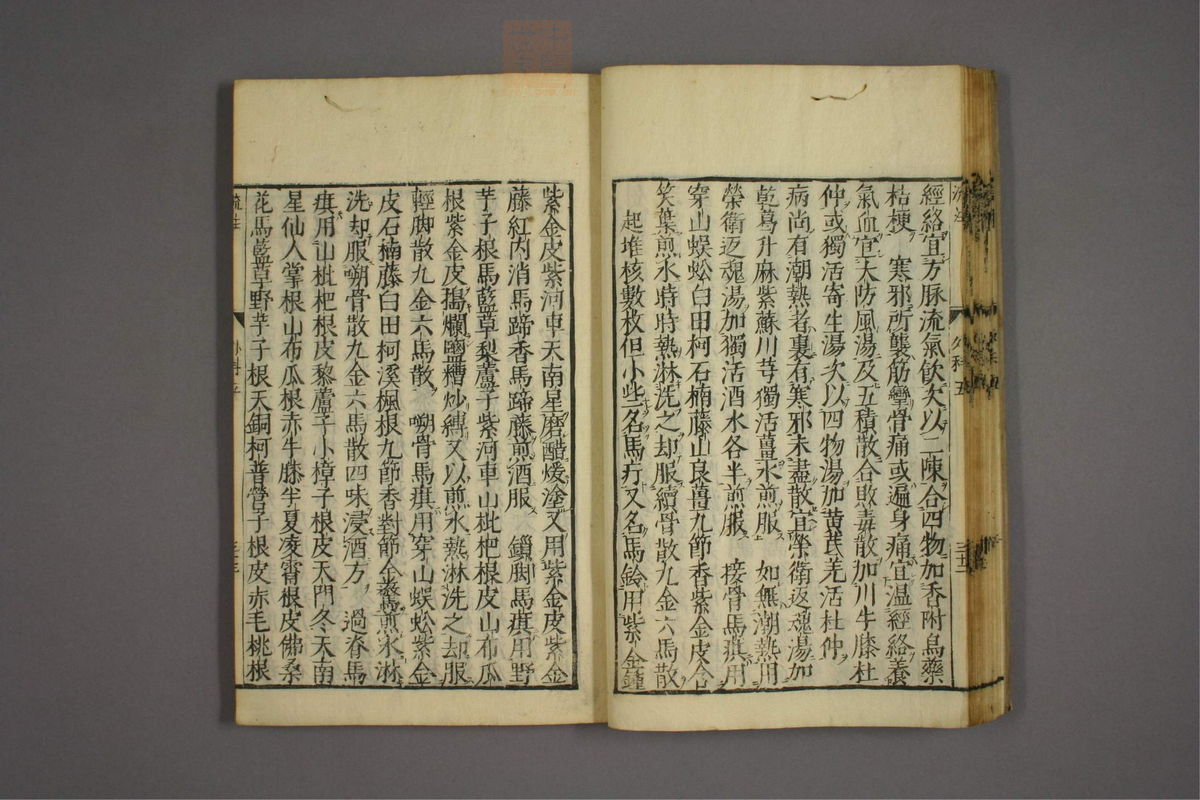 經絡宜方脉流氣飲次以二陳合四物加香附烏藥
桔梗　寒邪所襲筋攣骨痛或遍身痛宜溫經絡養
氣血宜大防風湯及五積散合敗毒散加川牛膝杜
仲或獨活寄生湯次以四物湯加黃芪羌活杜仲
病尚有潮熱者裏有寒邪未盡散宜榮衛返魂湯加
乾葛升麻紫蘇川芎獨活薑水煎服　如無潮熱用
榮衛返魂湯加獨活酒水各半煎服　接骨馬㾏用
穿山蜈蚣臼田柯石楠藤山良薑九節香紫金皮合
笑葉煎水時時熱淋洗之却服續骨散九金六馬散
起堆核數枚但小些名馬疔又名馬鈴用紫金鍾
紫金皮紫河車天南星磨醋煖塗又用紫金皮紫金
藤紅內消馬蹄香馬蹄藤煎酒服　鎻脚馬㾏用野
芋子根馬藍草梨蘆子紫河車山枇杷根皮山布瓜
根紫金皮搗爛鹽糟炒縛又以煎水熱淋洗之却服
輕脚散九金六馬散　嗍骨馬㾏用穿山蜈蚣紫金
皮石楠藤臼田柯溪楓根九節香對節金雞煎水淋
洗却服嗍骨散九金六馬散四味浸酒方　過脊馬
㾏用山枇杷根皮黎蘆子小樟子根皮天門冬天南
星仙人掌根山布瓜根赤牛膝半夏凌霄根皮佛桑
花馬藍草野芋子根天銅柯普營子根皮赤毛桃根